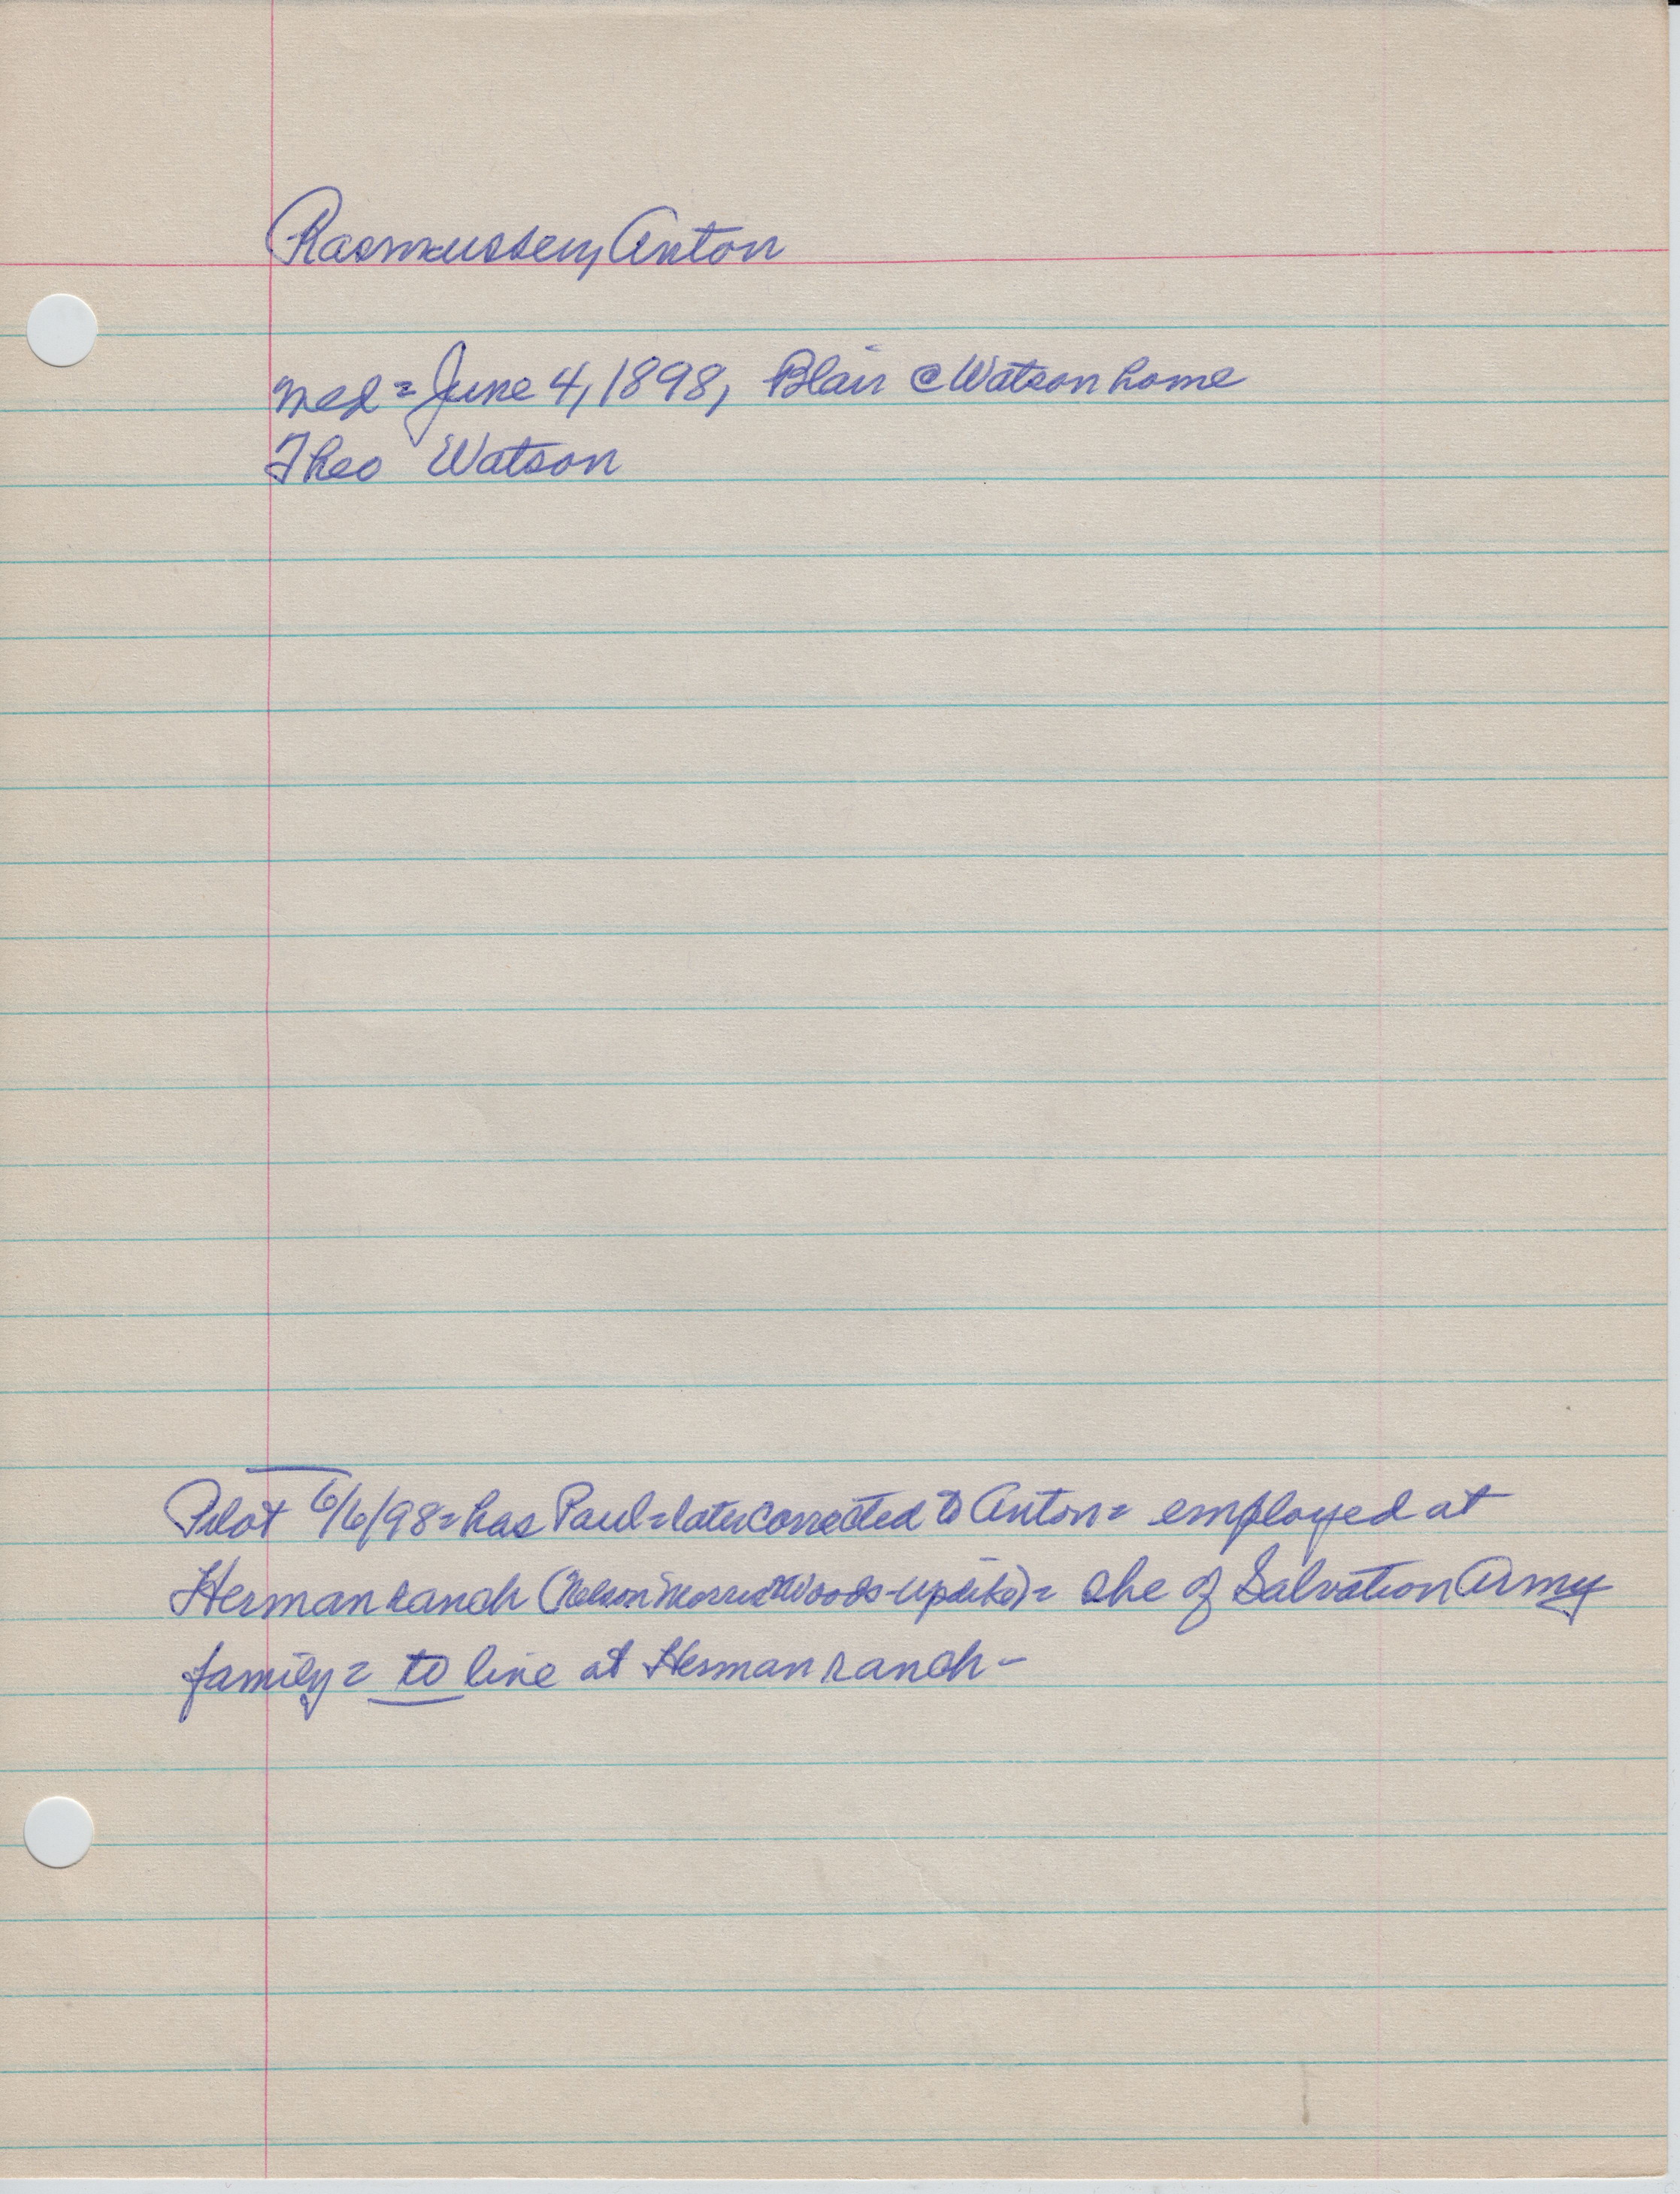 Rasmussen, Anton
med = June 4, 1898, Blair @ Watson home
Theo Watson
Pilot 6/6/98 = has Paul = later corrected to Anton = employed at
Herman ranch (Nelson Morris Woods - Updike) = she of Salvation Army
family = to live at Herman ranch -